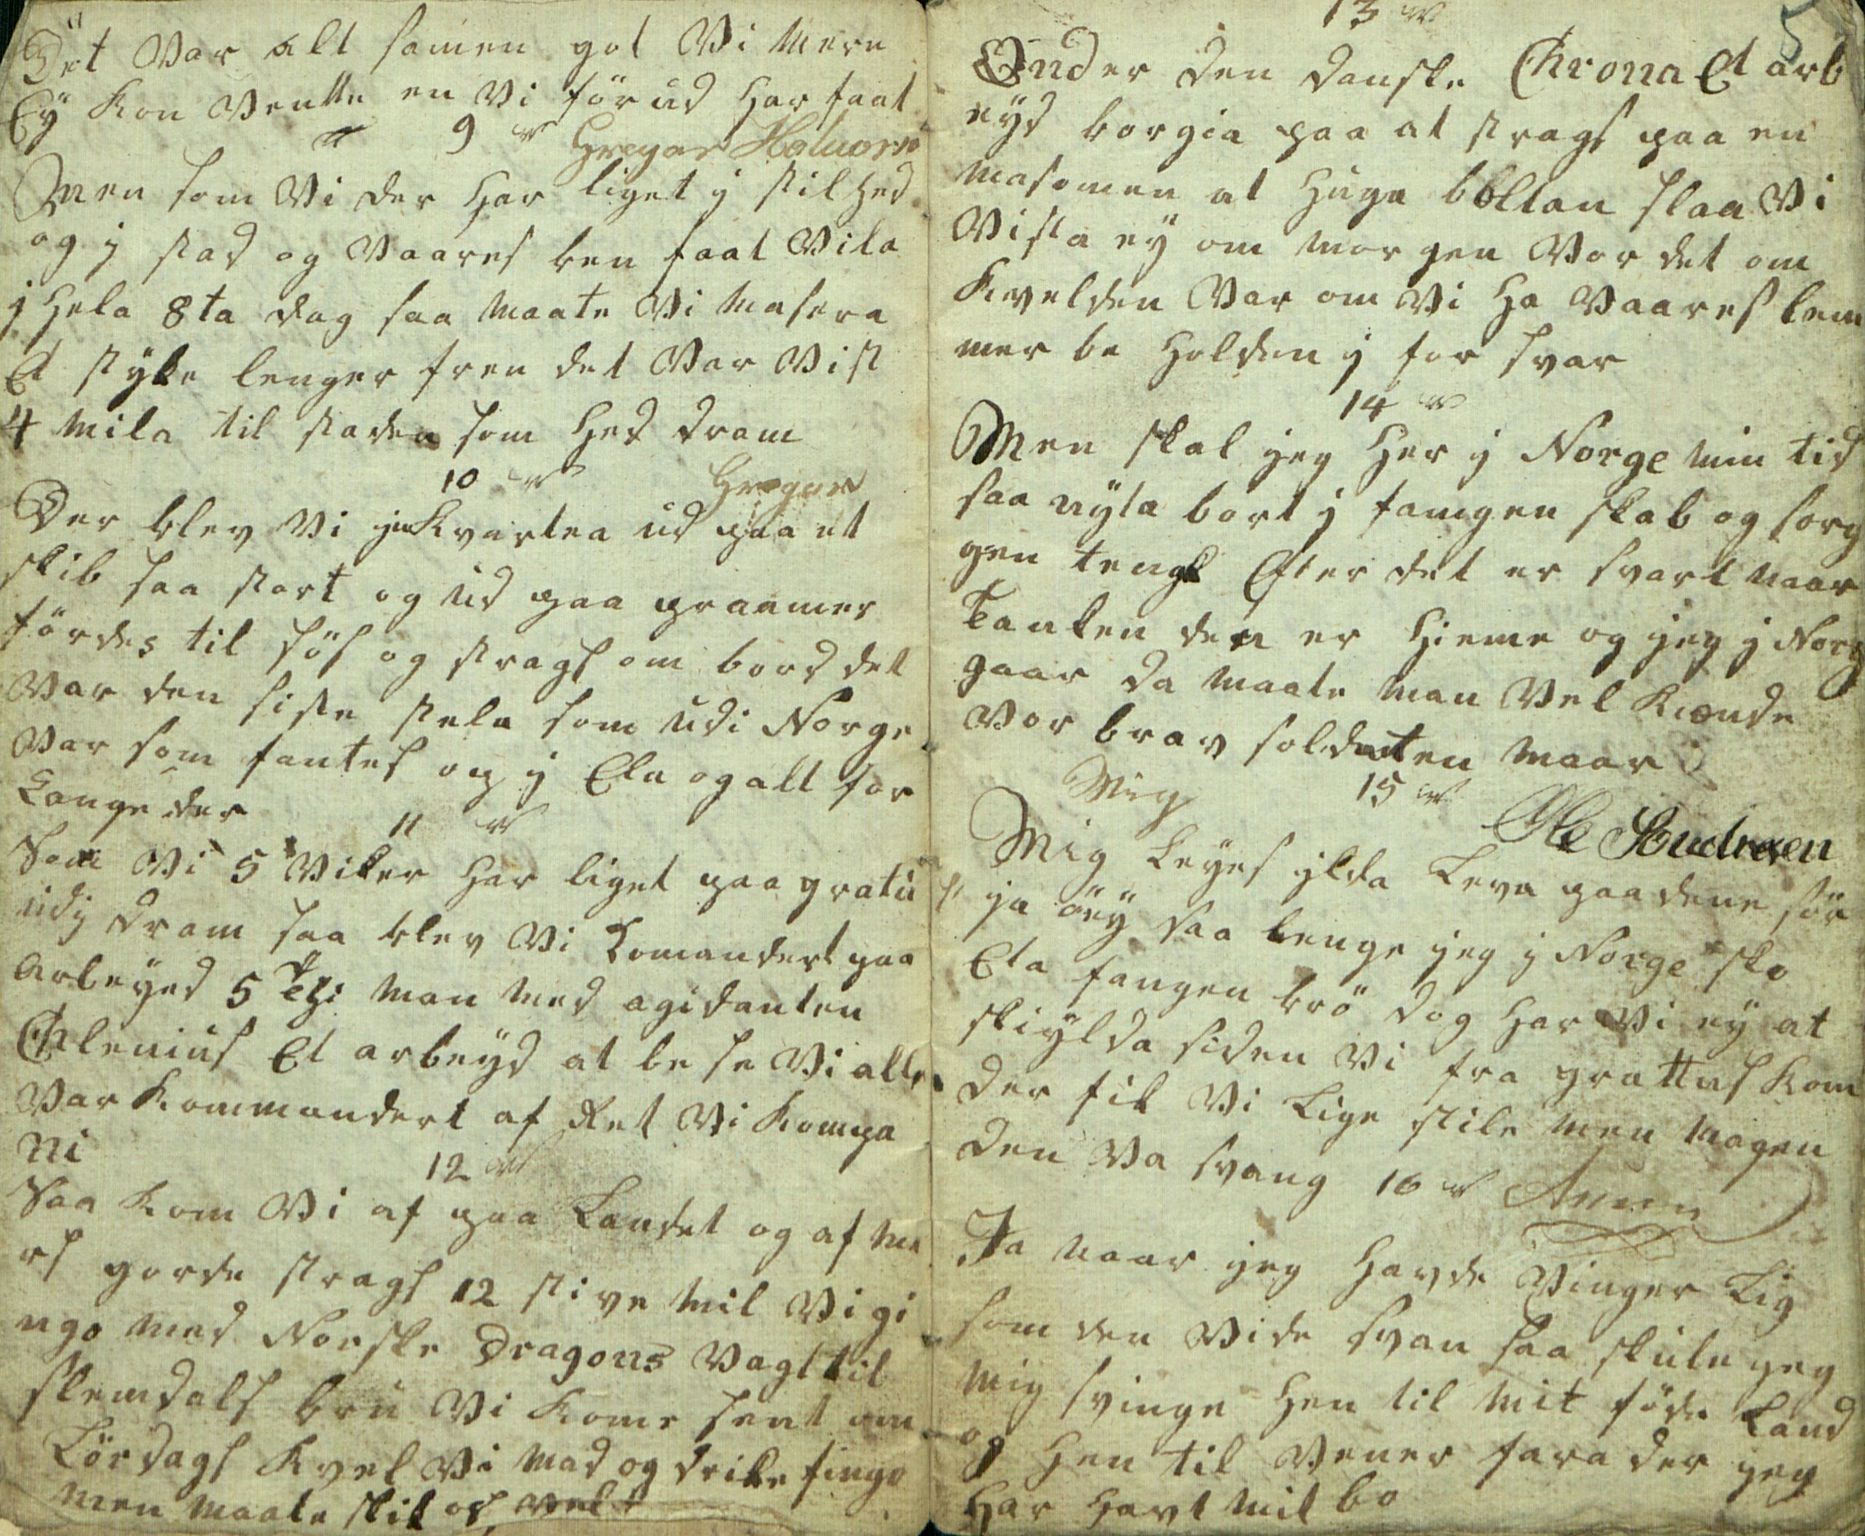 Det Var alt samen got Vi mere
Ey Kon Vente en Vi för ud har faat
9 v Gregar Halvorsø
Men som Vi der har liget j stilhed
og j stad og Vaares ben faat Vila
j hela 8ta dag saa maate Vi masera
Et styke lenger fren det Var Vist
4 mila til staden som hed dram
10 v Gregar
Der blev Vi jnKvartea ud paa et
skib saa stort og ud paa praamer
fördes til söss og strags om bord det
Var den siste stela som udi Norge
Var som fantes og j Ela og alt for
Lange der
11 v
Som Vi 5 Viker har liget paa gratu
udj dram saa blev Vi Komandert paa
Arbeyed 5 man med agidanten
Chlenius Et arbeyd at be se Vi alle
Var Kommandert af Ret Vi Kompa
ni
12 v
Saa kom Vi af paa Landet og af ma
rs gorde strags 12 stive mil Vi gi
ngo med Norske Dragons Vagt til
slemdals bru Vi Kome sent om
Lördags Kvel Vi mad og drike fingo
men maate skit os Vel
13 v
5
Under den danske Chrona Et arb
eyd borgia paa at strags paa en
masomen at huga bbltan slaa Vi
Vista ey om morgen Vor det om
Kvelden Var om Vi ha Vaares lem
mer be holden j for svar
14 v
Men skal jeg her j Norge min tid
saa nyta bort j famgen skab og sorg
gen tengt Efter det er svart naar
Tanken den er hieme og jeg j Norg
gaar da maate man Vel Kiende
Vor brav soldaten maar
Mig 15 v
Ole Andresen
Mig Leyes ilda Leva paa dene sör
ja öey saa lenge jeg j Norge sko
Eta fangen brö dog har Vi ey at
skiylda siden Vi fra grattus Kom
der fik Vi Lige stile men magen
den Va svang 16 v
Ja naar jeg havde Vinger Lig
som den Vide svan saa skule jeg
mig svinge hen til mit föde Land
og hen til Vener fara der jeg
har havt mit bo